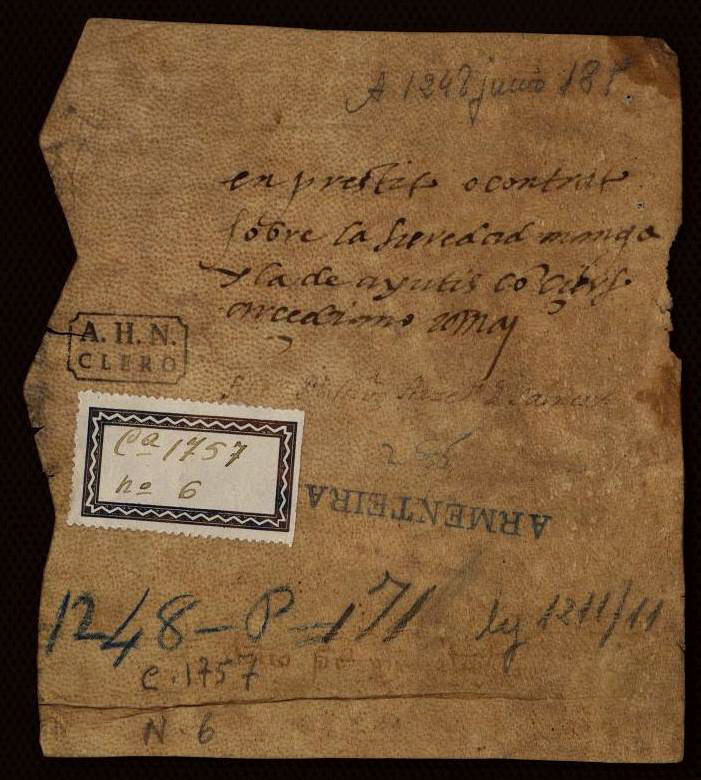 A 1248 junio 18
en prestito o contrat
sobre la heredad manga
y la de ayutis
arcediano
A. H. N.
CLERO
Cª 1757
nº 6
ARMENTEIRA
1248-P-171 leg 1211/11
C. 1757
N. 6